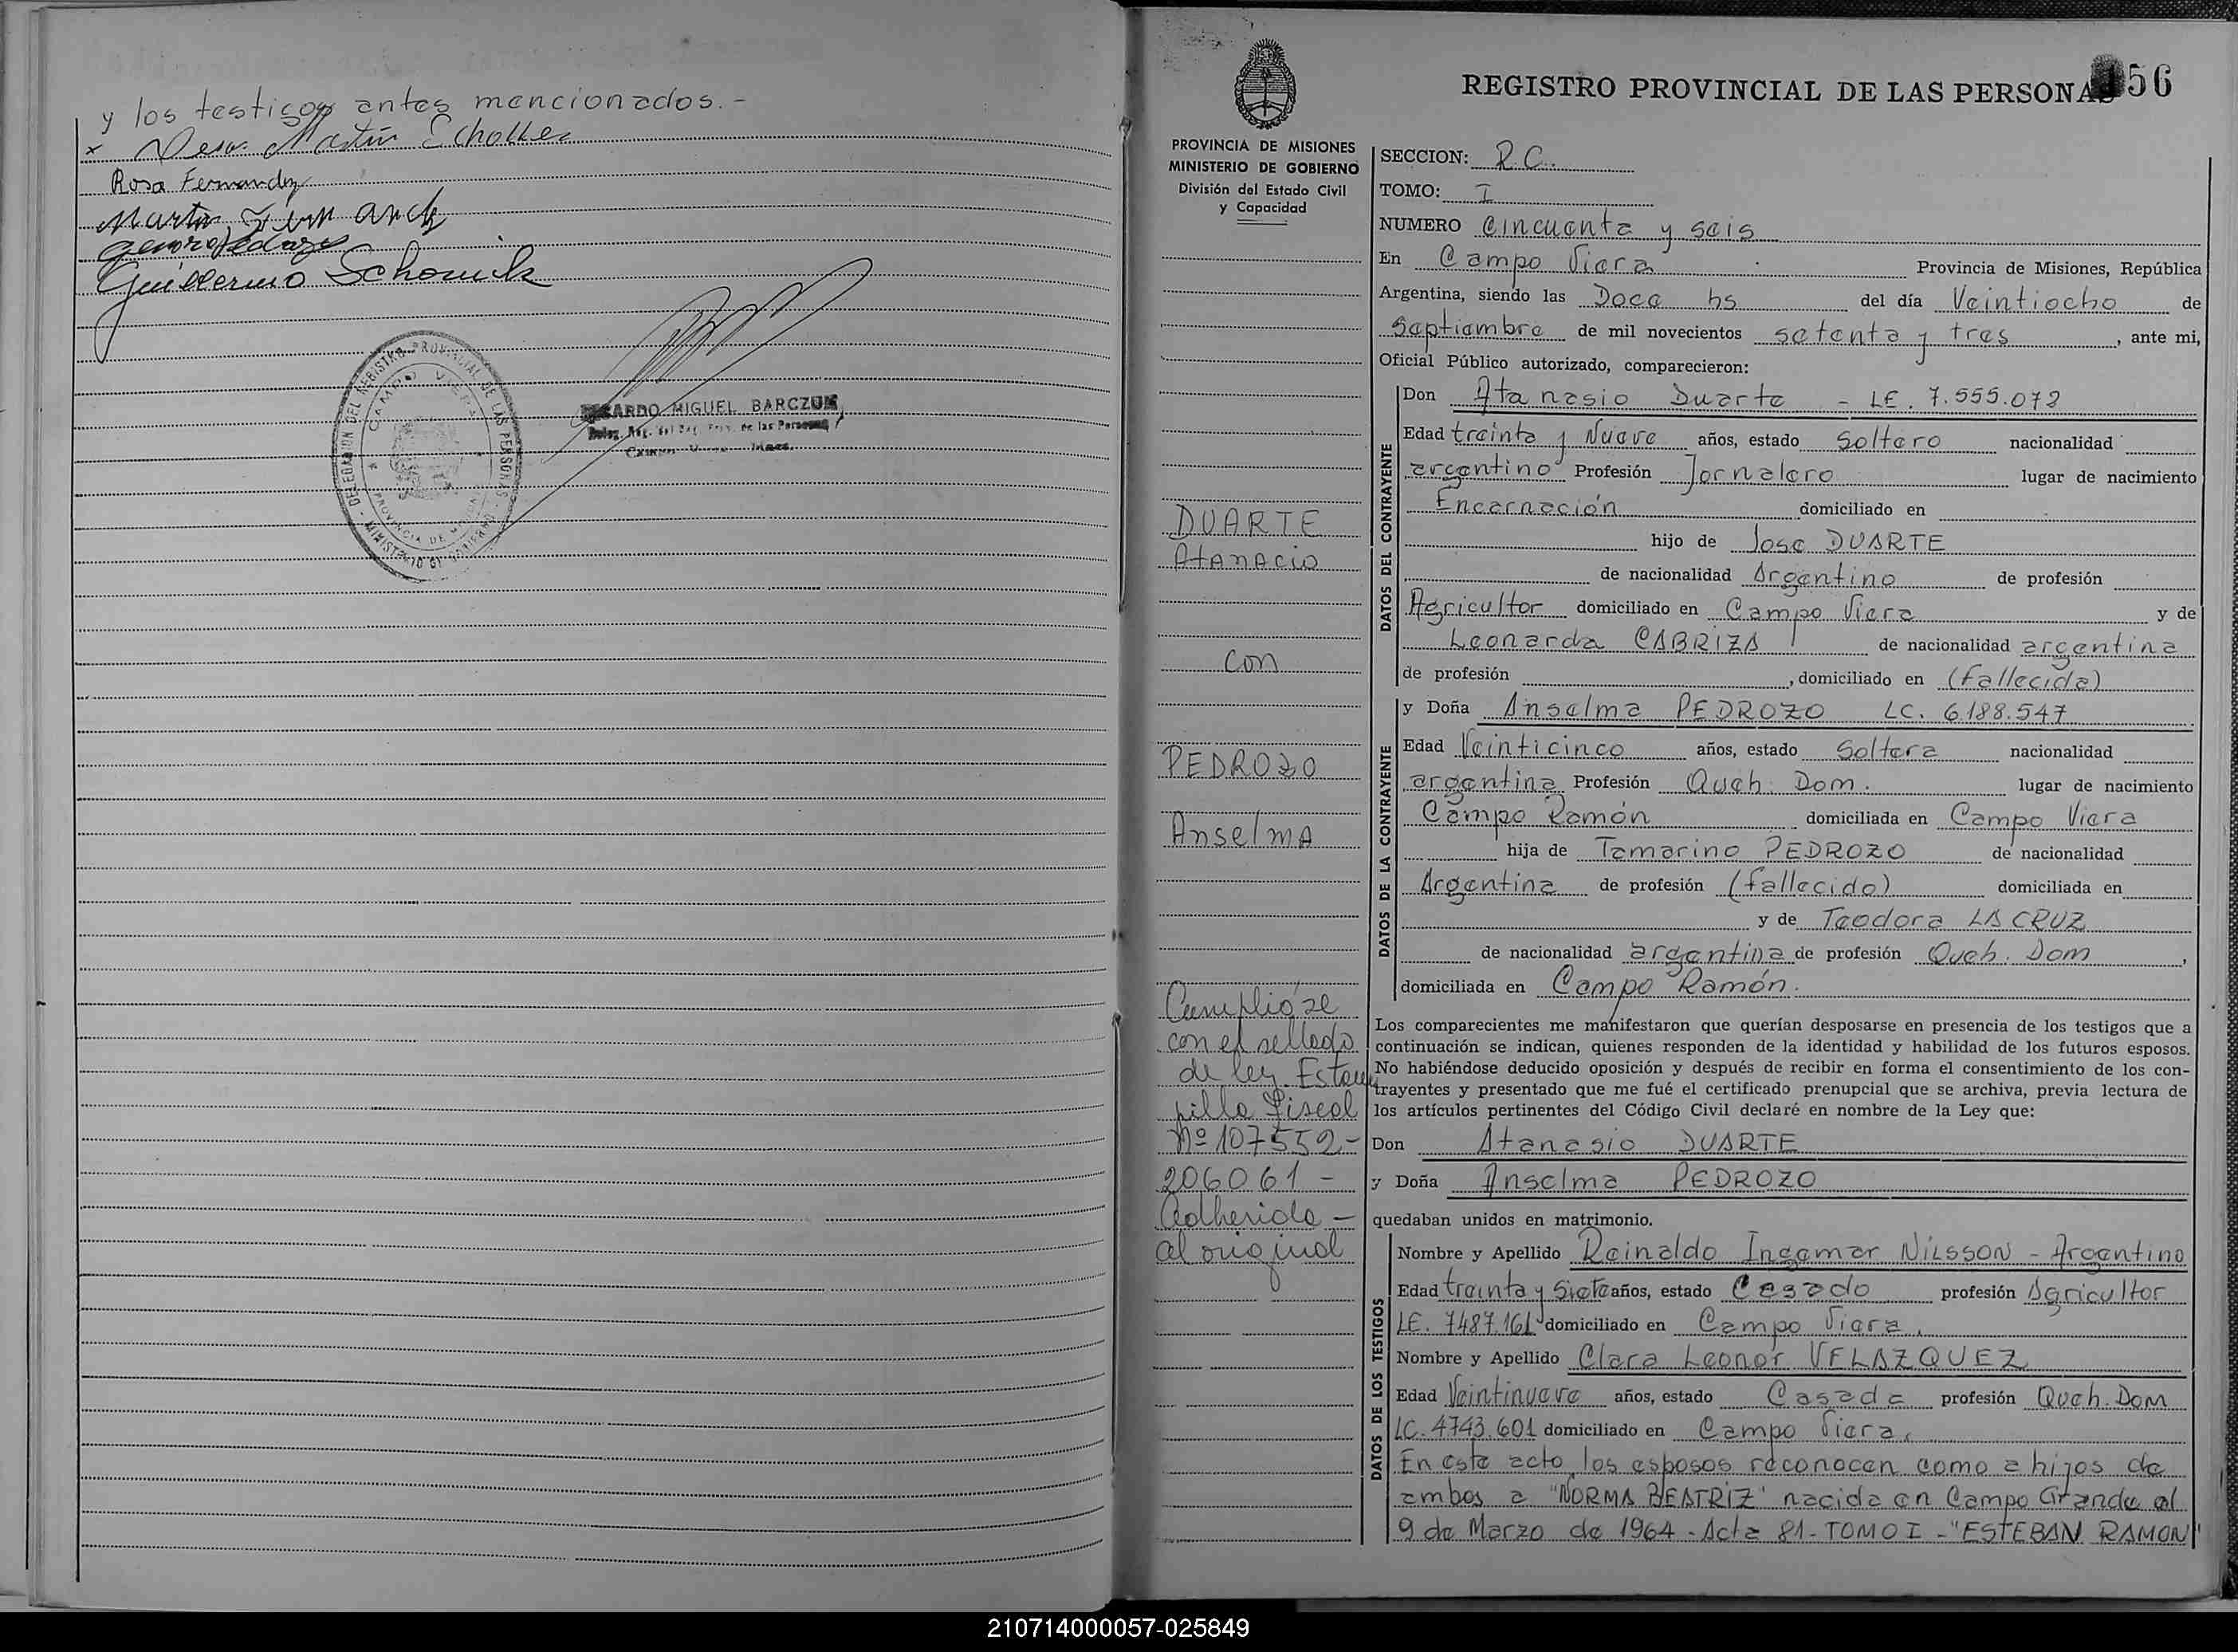 y los testigos antes mencionados.-
x Martin
Rosa Fernandez
Martin
Guillermo
DELEGACION DEL REGISTRO PROVINCIAL DE LAS PERSONAS
CAMPO VIERA
PROVINCIA DE MISIONES
MINISTERIO DE GOBIERNO
RICARDO MIGUEL BARCZUK
de las Personas
REGISTRO PROVINCIAL DE LAS PERSONAS
56
PROVINCIA DE MISIONES
MINISTERIO DE GOBIERNO
División del Estado Civil
y Capacidad
DUARTE
Atanacio
con
PEDROZO
Anselma
Cumplióse
con el sellado
de ley. Estam
pilla Fiscal
Nº 107552-
206061 -
adherida -
al original
SECCION: R.C.
TOMO: I
NUMERO Cincuenta y seis
En Campo Viera Provincia de Misiones, República
Argentina, siendo las Doce hs del día Veintiocho de
Septiembre de mil novecientos setenta y tres, ante mi,
Oficial Público autorizado, comparecieron:
DATOS DEL CONTRAYENTE
Don Atanasio Duarte - LE. 7.555.072
Edad treinta y Nueve años, estado Soltero nacionalidad
argentino Profesión Jornalero lugar de nacimiento
Encarnación domiciliado en
hijo de Jose DUARTE
de nacionalidad Argentino de profesión
Agricultor domiciliado en Campo Viera y de
Leonarda CABRIZA de nacionalidad argentina
de profesión , domiciliado en (fallecida)
DATOS DE LA CONTRAYENTE
y Doña Anselma PEDROZO LC. 6.188.547
Edad Veinticinco años, estado Soltera nacionalidad
argentina Profesión Queh. Dom. lugar de nacimiento
Campo Ramón domiciliada en Campo Viera
hija de Tamarino PEDROZO de nacionalidad
Argentina de profesión (fallecido) domiciliada en
y de Teodora LA CRUZ
de nacionalidad argentina de profesión Queh. Dom,
domiciliada en Campo Ramón.
Los comparecientes me manifestaron que querían desposarse en presencia de los testigos que a
continuación se indican, quienes responden de la identidad y habilidad de los futuros esposos.
No habiéndose deducido oposición y después de recibir en forma el consentimiento de los con-
trayentes y presentado que me fué el certificado prenupcial que se archiva, previa lectura de
los artículos pertinentes del Código Civil declaré en nombre de la Ley que:
Don Atanasio DUARTE
y Doña Anselma PEDROZO
quedaban unidos en matrimonio.
DATOS DE LOS TESTIGOS
Nombre y Apellido Reinaldo Ingemar NILSSON - Argentino
Edad treinta y Siete años, estado Casado profesión Agricultor
LE. 7487.161 domiciliado en Campo Viera.
Nombre y Apellido Clara Leonor VELAZQUEZ
Edad Veintinueve años, estado Casada profesión Queh. Dom
LC. 4743.601 domiciliado en Campo Viera.
En este acto los esposos reconocen como a hijos de
ambos a "NORMA BEATRIZ" nacida en Campo Grande el
9 de Marzo de 1964 - Acta 81 - TOMO I - "ESTEBAN RAMON"
210714000057-025849